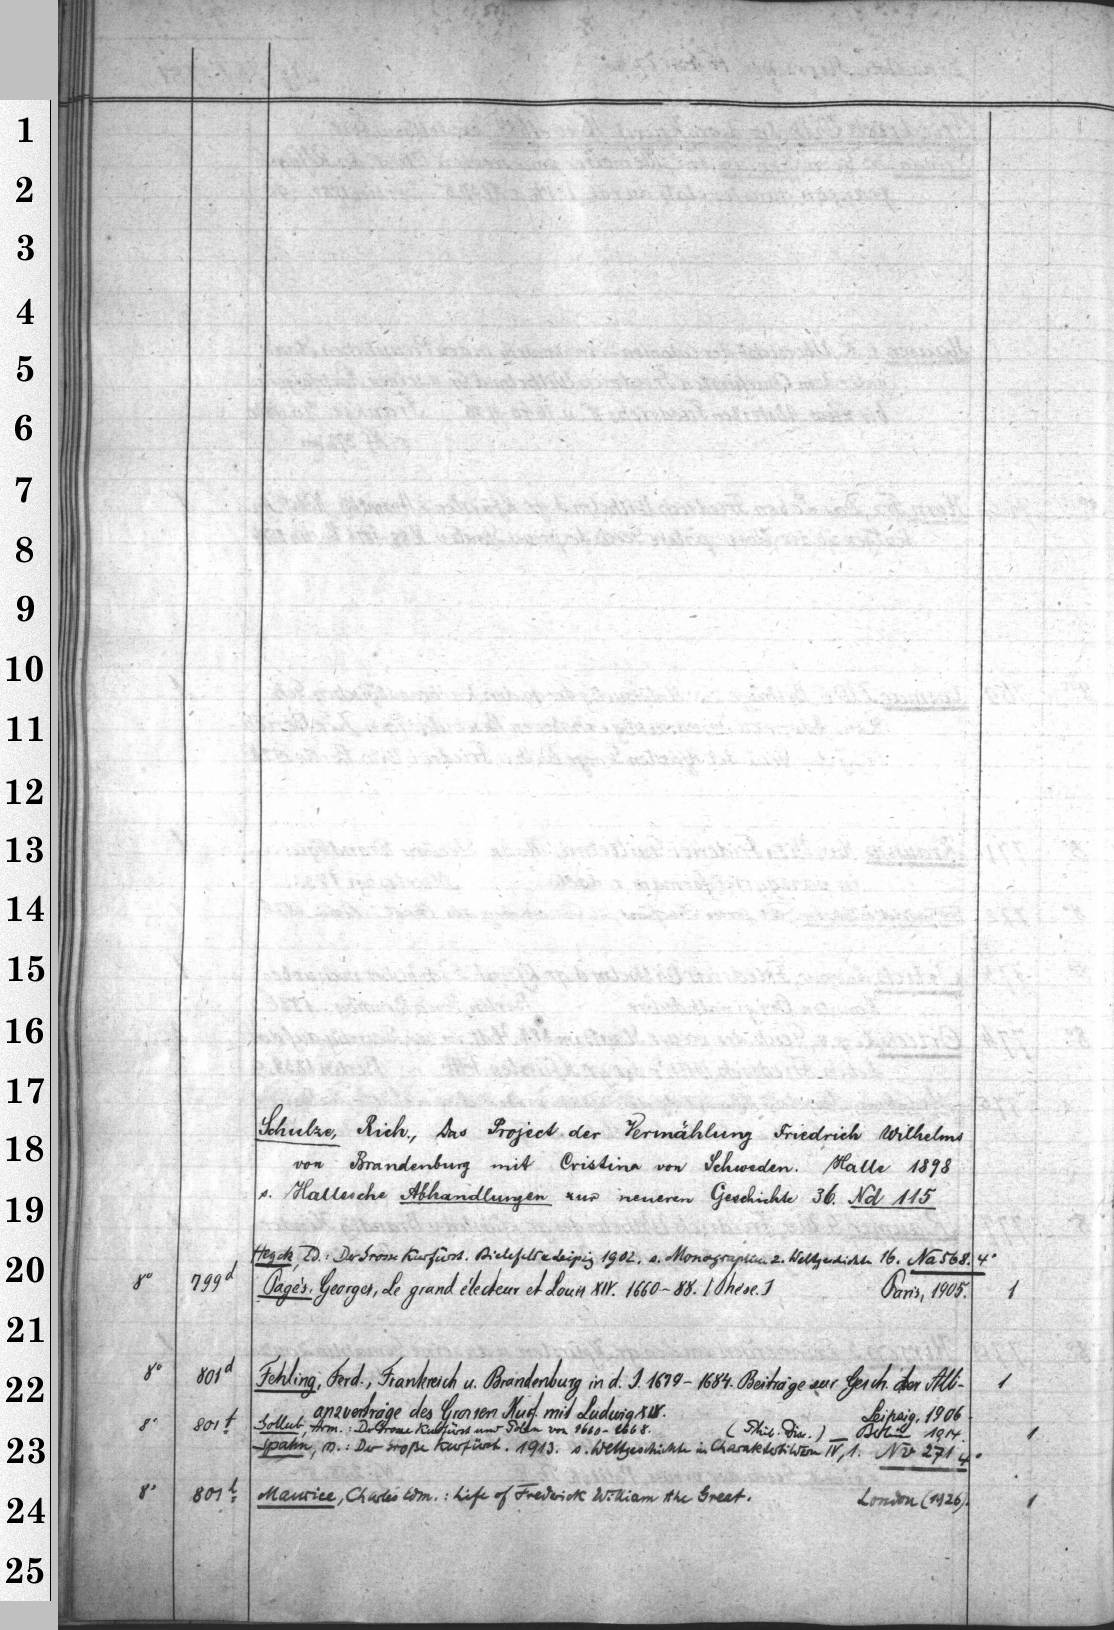 1
2
3
4
5
6
7
8
9
10
11
12
13
14
15
16
17
18
19
20
21
22
23
24
25
Schulze, Rich., Das Project der Vermählung Friedrich Wilhelms
von Brandenburg mit Cristina von Schweden. Halle 1898
s. Hallesche Abhandlungen zur neueren Geschichte 36. Nd 115
Heyck, Ed.: Der Grosse Kurfürst. Bielefeld u. Leipzig 1902. s. Monographien z. Weltgeschichte 16. Na 568. 4°
8° 799d Pagès, Georges, Le grand électeur et Louis XIV. 1660-88. [Thèse.] Paris, 1905. 1
8° 801d Fehling, Ferd., Frankreich u. Brandenburg in d. J. 1679-1684. Beiträge zur Gesch. der Alli-
anzverträge des Grossen Kurf. mit Ludwig XIV. Leipzig, 1906. 1
8° 801f Gollub, Herm.: Der Grosse Kurfürst und Polen von 1660-1668. (Phil. Diss.) — Berlin 1914. 1
Spahn, M.: Der Große Kurfürst. 1913. s. Weltgeschichte in Charakterbildern IV, 1. Nv 271 4°
8° 801h Maurice, Charles Edm.: Life of Frederick William the Great. London (1926). 1